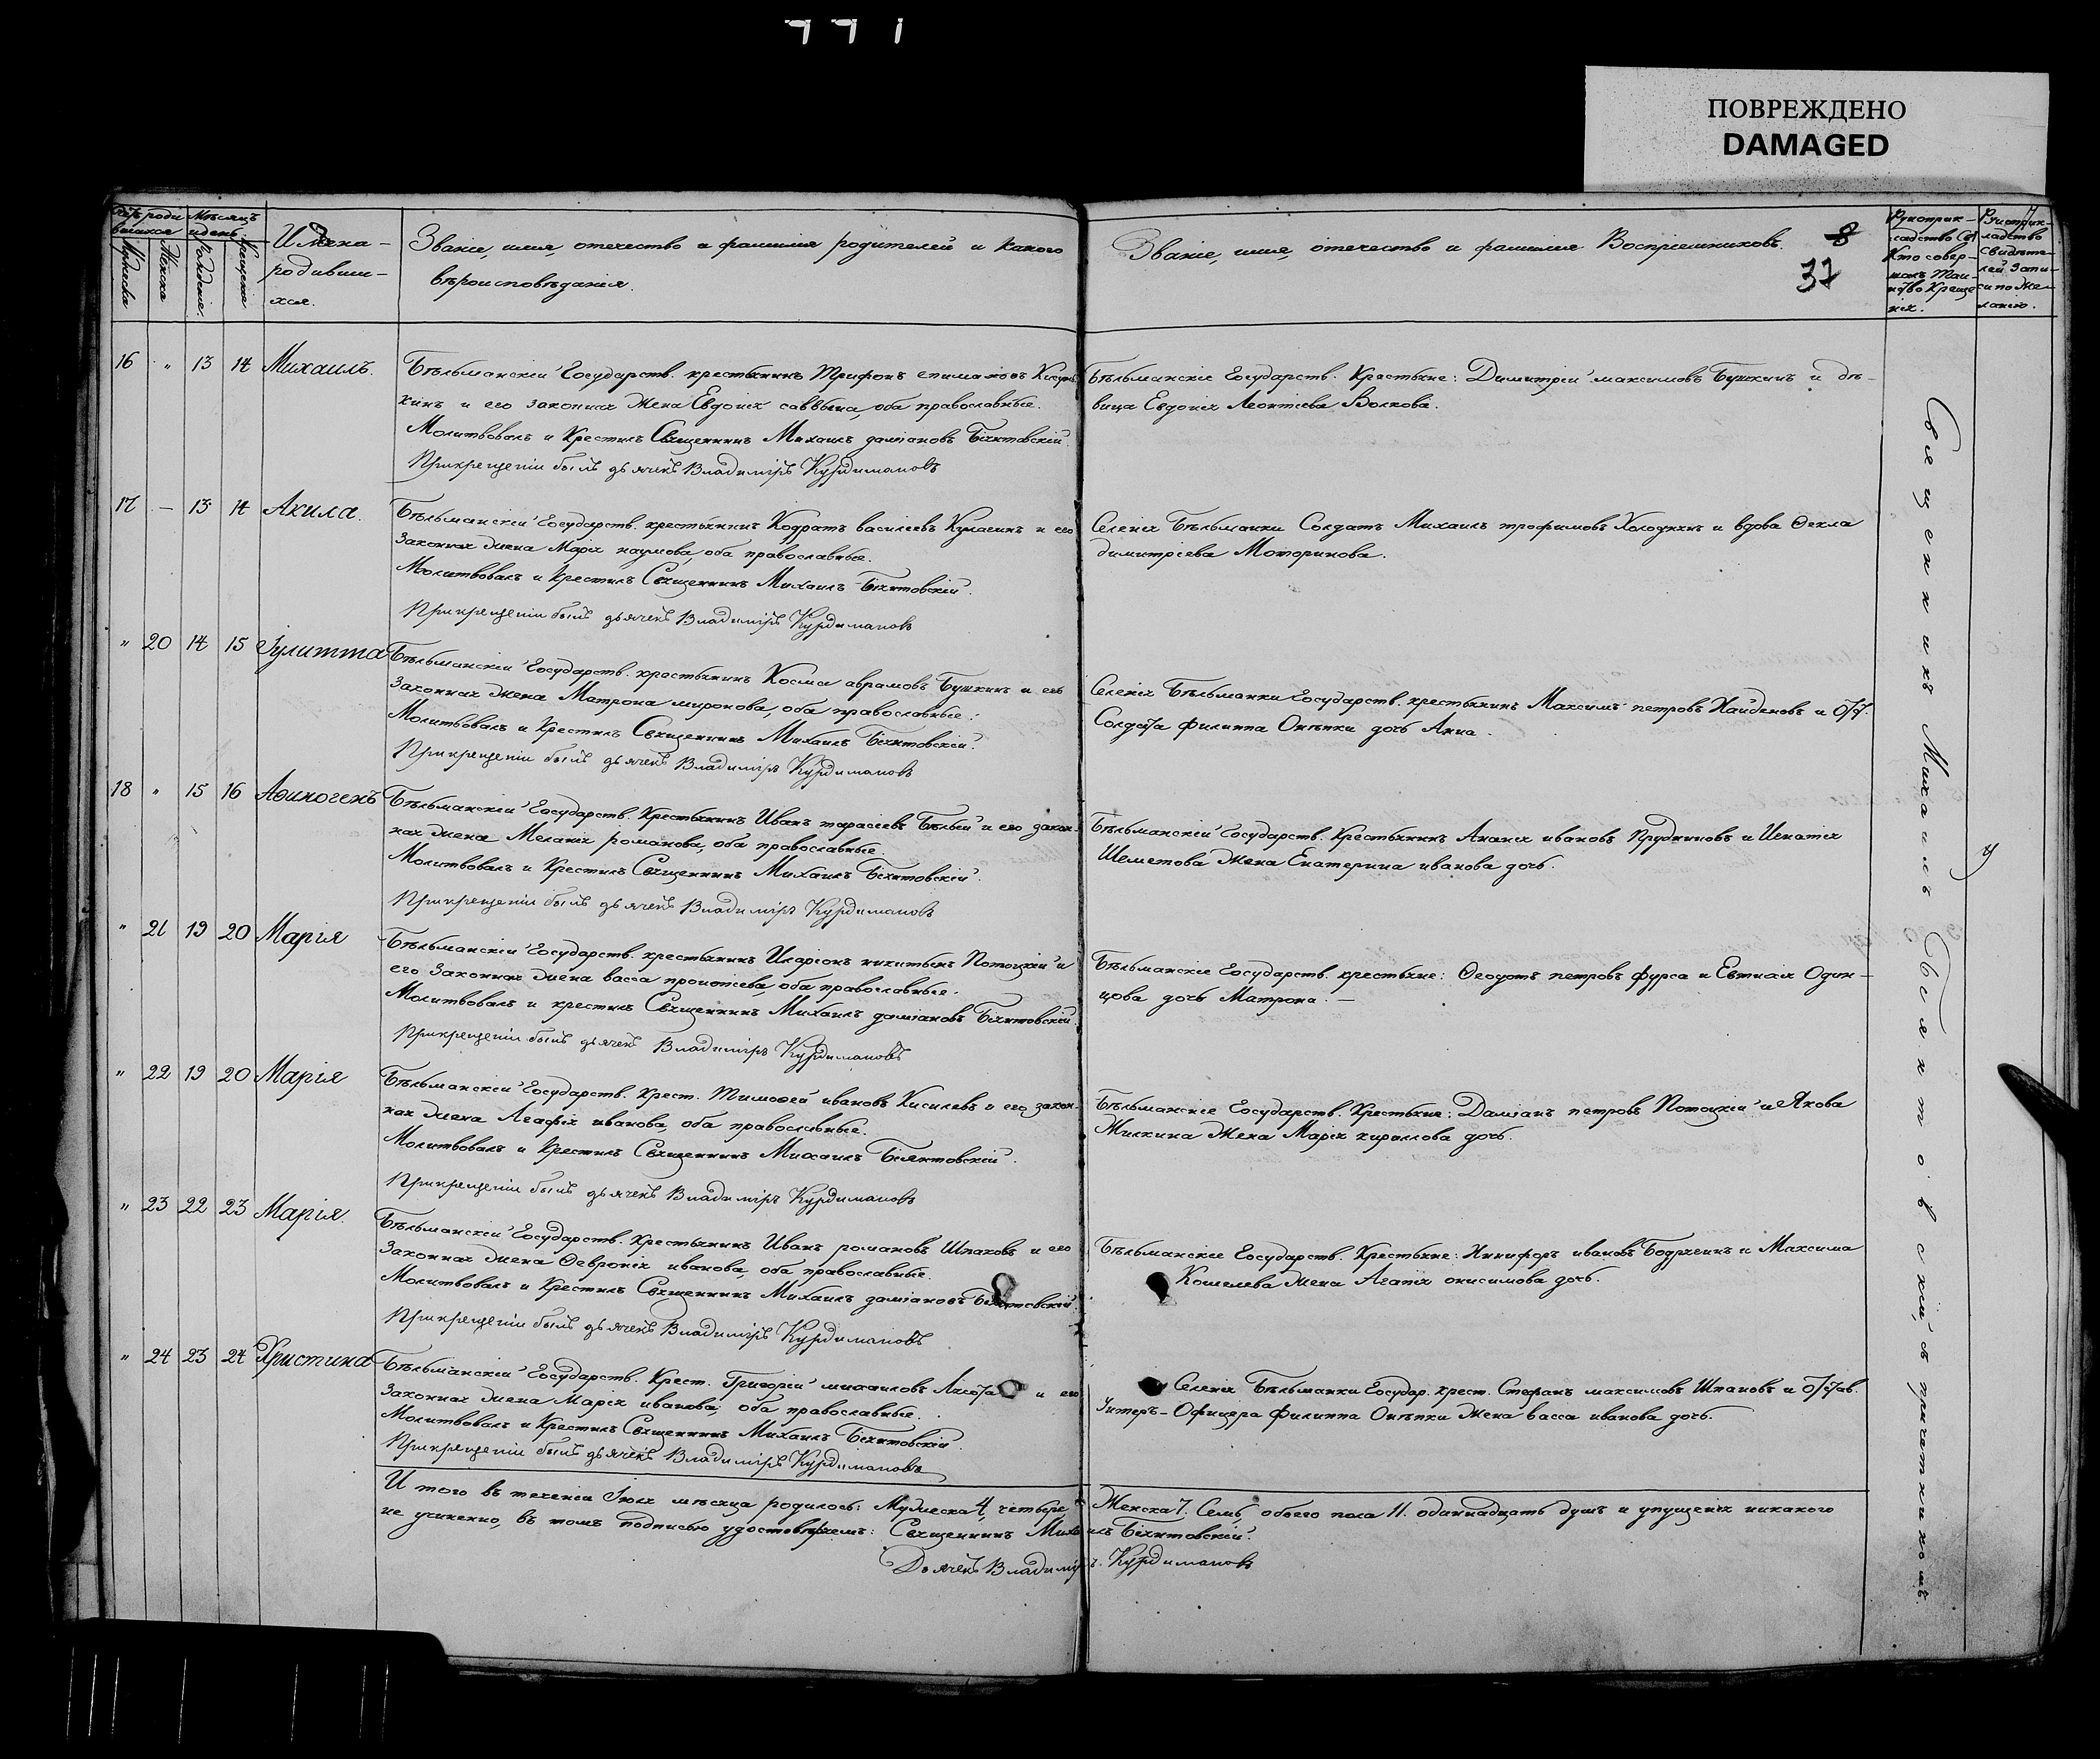 ПОВРЕЖДЕНО
DAMAGED
Мѣсяцъ
и день
Мужеска
Женска
Рожденія.
Крещенія
Имена
родивши-
хся.
Званіе, имя, отечество и фамилія родителей и какого
вѣроисповѣданія.
Званіе, имя, отечество и фамилія Воспріемниковъ.
8
37
16 „ 13 14 Михаилъ.
Бѣльманскій Государств. крестьянинъ Трифонъ
и его законная жена Евдокія саввьина, оба православные.
Молитвовалъ и Крестилъ Священникъ Михаилъ даміановъ Біянтовскій.
При крещеніи былъ дьячекъ Владиміръ Курдимановъ
Бѣльманскіе Государств. Крестьяне: Димитрій максимовъ Бушкинъ и дѣ-
вица Евдокія Леонтіева Волкова.
17 — 13 14 Акила.
Бѣльманскій Государств. крестьянинъ Кодратъ василіевъ Кулагинъ и его
Законная жена Марія наумова, оба православные.
Молитвовалъ и Крестилъ Священникъ Михаилъ Біянтовскій.
При крещеніи былъ дьячекъ Владиміръ Курдимановъ
Селенія Бѣльманки Солдатъ Михаилъ трофимовъ Холодкинъ и вдова Ѳекла
димитріева Моторикова.
„ 20 14 15 Іулитта
Бѣльманскій Государств. крестьянинъ Косма аврамовъ Бушкинъ и его
Законная жена Матрона миронова, оба православные.
Молитвовалъ и Крестилъ Священникъ Михаилъ Біянтовскій.
При крещеніи былъ дьячекъ Владиміръ Курдимановъ
Селенія Бѣльманки Государств. крестьянинъ Максимъ петровъ Найденовъ и Отст.
Солдата филиппа Онѣпки дочь Анна.
18 „ 15 16 Аѳиногенъ
Бѣльманскій Государств. Крестьянинъ Иванъ тарасіевъ Бѣлый и его закон-
ная жена Меланія романова, оба православные.
Молитвовалъ и Крестилъ Священникъ Михаилъ Біянтовскій.
При крещеніи былъ дьячекъ Владиміръ Курдимановъ
Бѣльманскій Государств. Крестьянинъ Ананія ивановъ Прудниковъ и Игнатія
Шеметова жена Екатерина иванова дочь.
„ 21 19 20 Марія
Бѣльманскій Государств. крестьянинъ Иларіонъ никитьевъ Потоцкій и
его Законная жена васса прокопіева, оба православные.
Молитвовалъ и крестилъ Священникъ Михаилъ даміановъ Біянтовскій.
При крещеніи былъ дьячекъ Владиміръ Курдимановъ
Бѣльманскіе Государств. крестьяне: Ѳеодотъ петровъ фурса и Евтихія Один-
цова дочь Матрона. —
„ 22 19 20 Марія
Бѣльманскій Государств. Крест. Тимоѳей ивановъ Кисилевъ и его закон-
ная жена Агафія иванова, оба православные.
Молитвовалъ и Крестилъ Священникъ Михаилъ Біянтовскій.
При крещеніи былъ дьячекъ Владиміръ Курдимановъ
Бѣльманскіе Государств. Крестьяне: Даміанъ петровъ Потоцкій и Якова
Жилкина жена Марія кириллова дочь.
„ 23 22 23 Марія.
Бѣльманскій Государств. Крестьянинъ Иванъ романовъ Шпаковъ и его
Законная жена Ѳевронія иванова, оба православные.
Молитвовалъ и Крестилъ Священникъ Михаилъ даміановъ Біянтовскій.
При крещеніи былъ дьячекъ Владиміръ Курдимановъ
Бѣльманскіе Государств. Крестьяне: Никифоръ ивановъ Бодрягинъ и Максима
Кошелева жена Агапія онисимова дочь.
„ 24 23 24 Христина
Бѣльманскій Государств. Крест. Григорій михаиловъ и его
Законная жена Марія иванова, оба православные.
Молитвовалъ и Крестилъ Священникъ Михаилъ Біянтовскій.
При крещеніи былъ дьячекъ Владиміръ Курдимановъ
Селенія Бѣльманки Государ. крест. Стефанъ максимовъ Шпаковъ и Отстав.
Унтеръ-Офицера Филиппа Онѣпки жена васса иванова дочь.
И того въ теченіи Іюля мѣсяца родилось: Мужеска 4, четыре Женска 7. Семь, обоего пола 11. одиннадцать душъ и упущенія никакого
не учинено, въ томъ подписью удостовѣряемъ: Священникъ Михаилъ Біянтовскій.
Дьячекъ Владиміръ Курдимановъ
Священникъ Михаилъ Біянтовскій, съ причетникомъ.